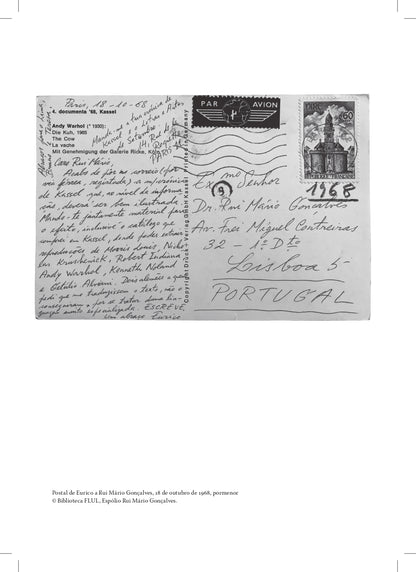 Paris, 18-10-68
4. documenta '68, Kassel
Andy Warhol (* 1930):
Die Kuh, 1965
The Cow
La vache
Mit Genehmigung der Galerie Ricke, Köln
Caro Rui Mário,
Acabo de pôr no correio (por
via aérea, registada) a
de Kassel que, no nível de informa-
ções, deverá ser bem ilustrada.
Mando-te juntamente material para
o efeito, inclusive o catálogo que
comprei em Kassel, donde podes retirar
reproduções de Morris Louis, Nicho-
las Krushenick, Robert Indiana
Andy Warhol, Kenneth Noland
e Getúlio Alviani. Dois alemães a quem
pedi que me traduzissem o texto, não o
conseguiram por se tratar duma lin-
guagem muito especializada. ESCREVE.
Um abraço Eurico
Copyright Druck + Verlag GmbH Kassel
PAR AVION
0,60
1968
Exmo Senhor
9
Dr. Rui Mário Gonçalves
Av. Frei Miguel Contreiras
32 - 1º Dto
Lisboa 5
PORTUGAL
Postal de Eurico a Rui Mário Gonçalves, 18 de outubro de 1968, pormenor
© Biblioteca FLUL, Espólio Rui Mário Gonçalves.